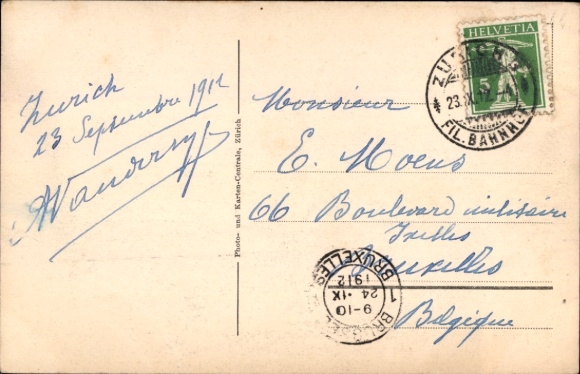 Zurich
23 Septembre 1912
Photo- und Karten-Centrale, Zürich
HELVETIA
5
ZÜRICH
23.IX.12
FIL. BAHNHOF
Monsieur
E. Moens
66 Boulevard militaire
Ixelles
Bruxelles
Belgique
1 BRUXELLES
9-10
24 · IX
1912